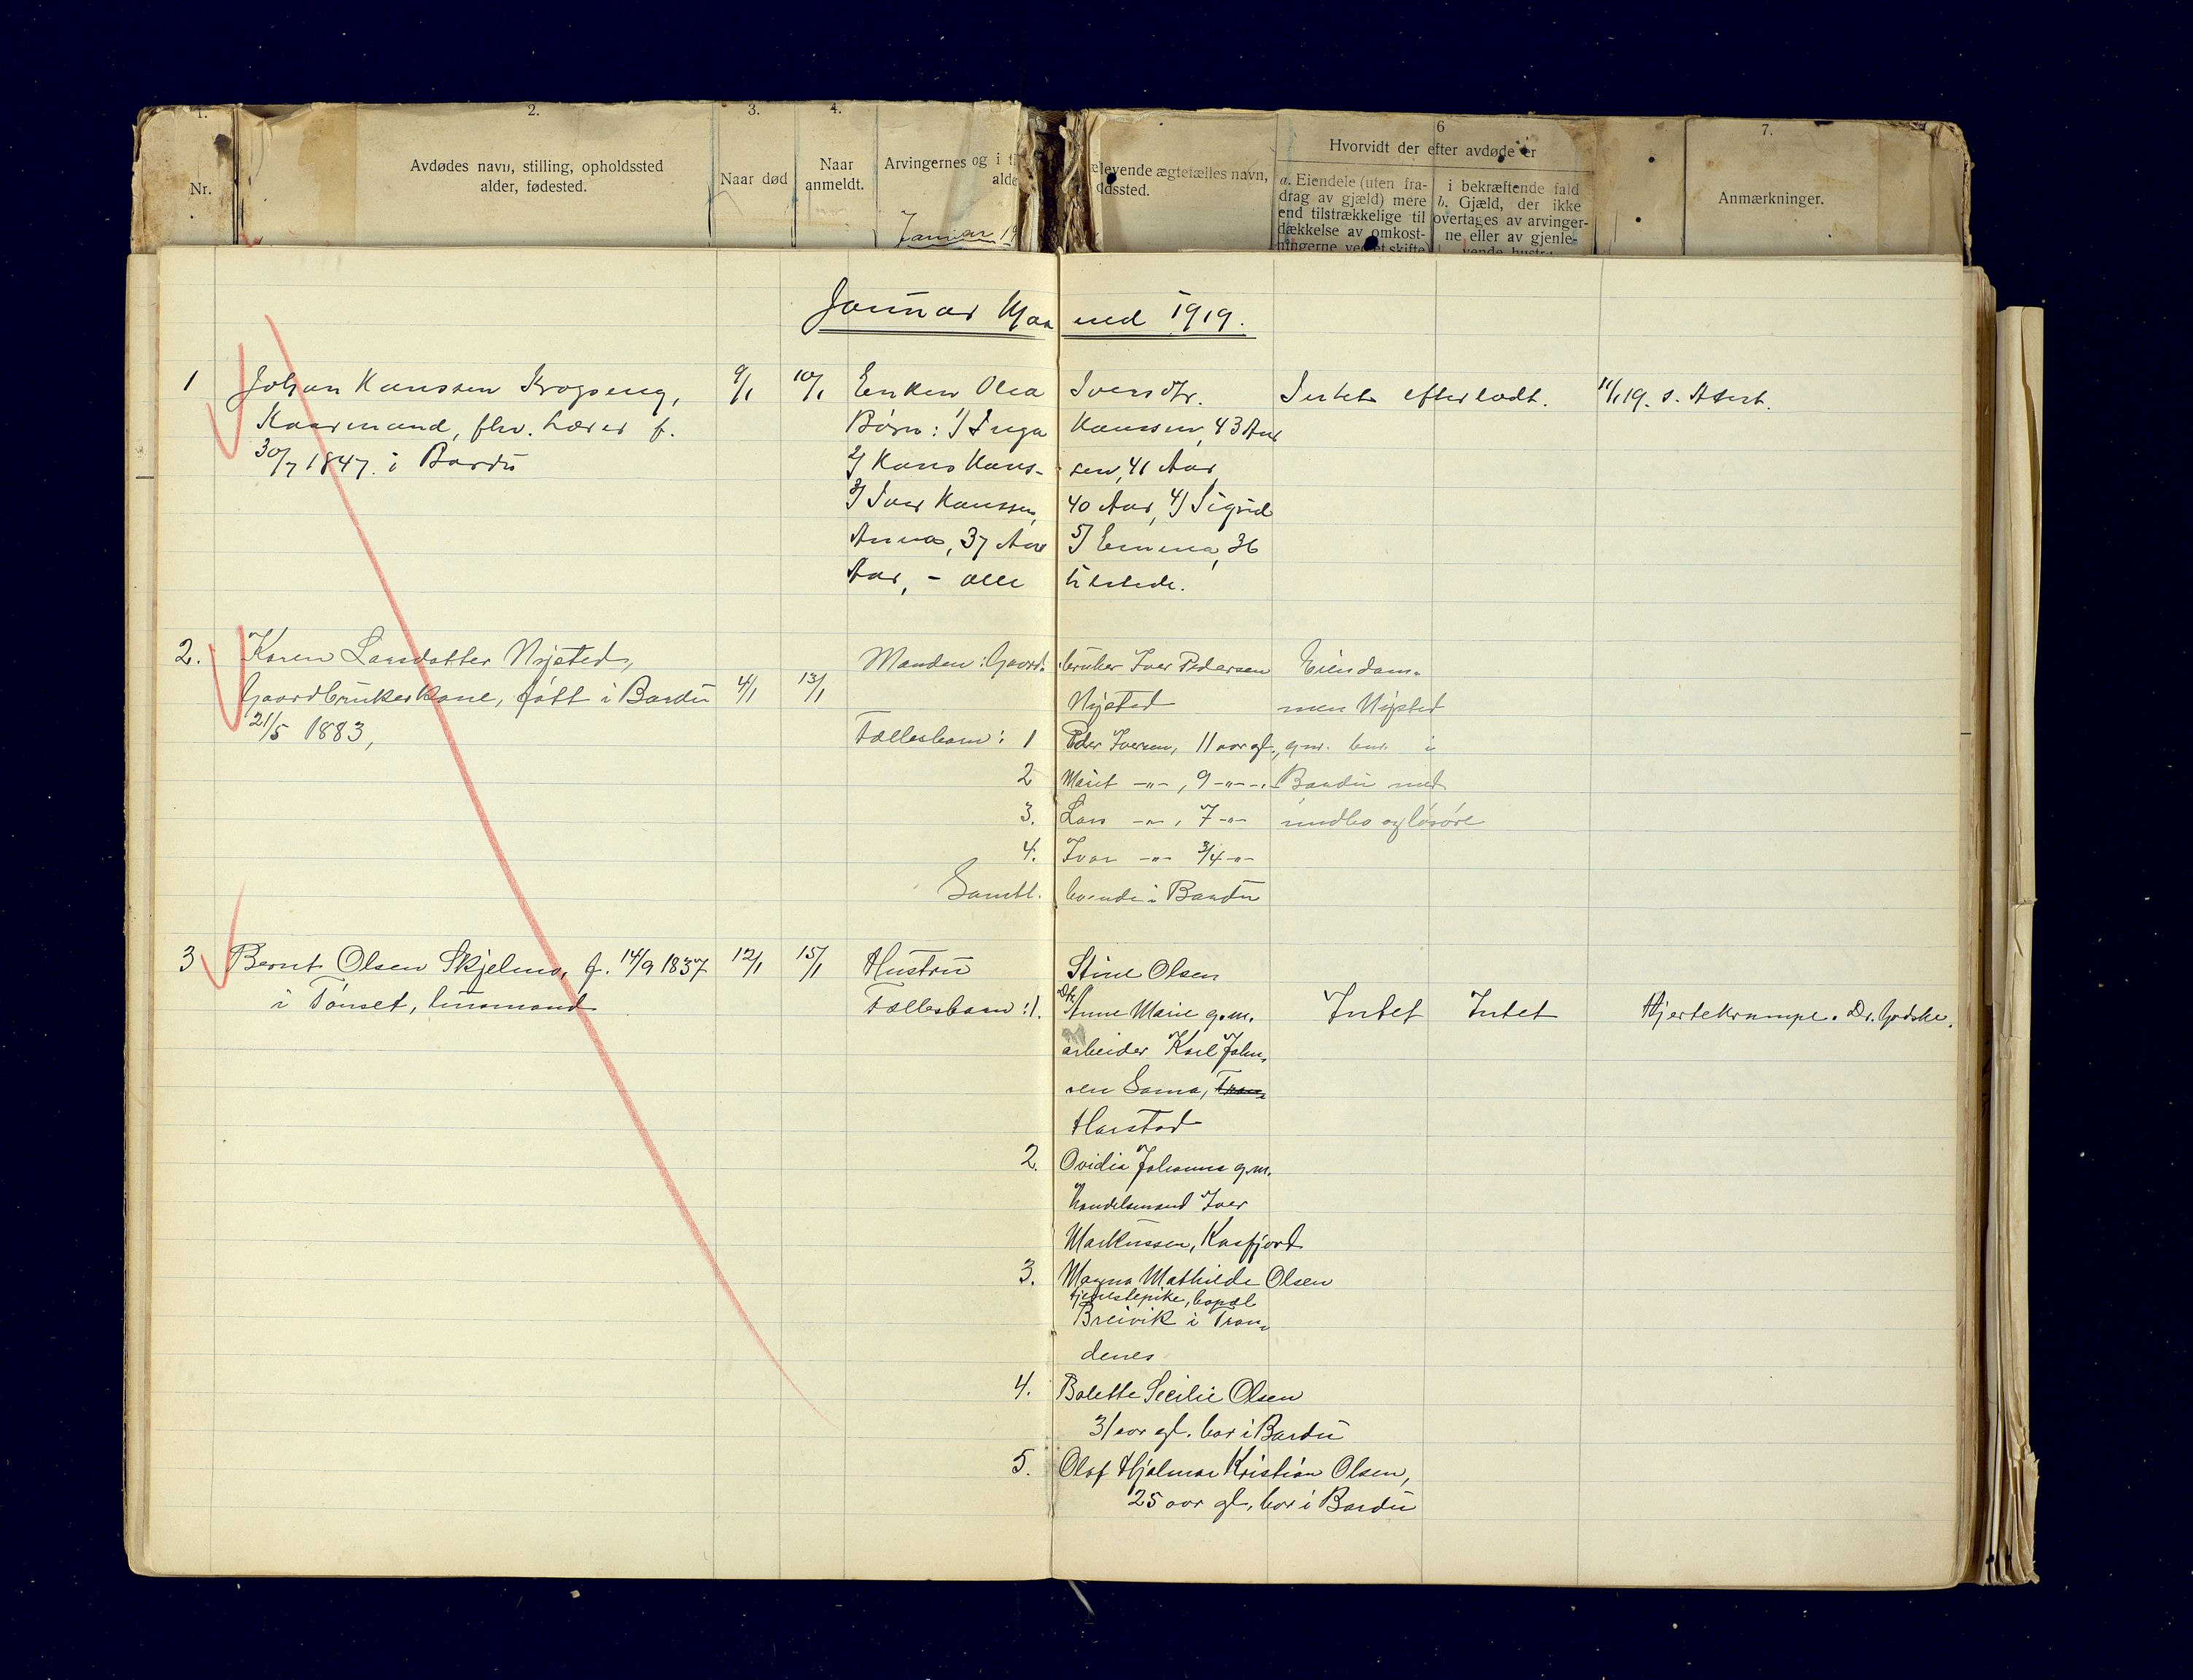 1. 2. 3. 4. 6 7.
Nr.
Avdødes navn, stilling, opholdssted
alder, fødested.
Naar død
Naar
anmeldt.
Arvingernes og i t
alde
elevende ægtefælles navn,
dssted.
Hvorvidt der efter avdøde er
a. Eiendele (uten fra-
drag av gjæld) mere
end tilstrækkelige til
dækkelse av omkost-
ningerne ved et skifte)
i bekræftende fald
b. Gjæld, der ikke
overtages av arvinger-
ne eller av gjenle-
vende hustru
Anmærkninger.
Januar 19
Januar Maaned 1919.
1 Johan Hanssen Krogseng, 9/1 10/1 Enken Olea Iversdtr. Intet efterladt. 11/1 19. s. Attest.
Kaarmand, fhv. Lærer f. Børn: 1/ Inga Hanssen, 43 Aar
30/7 1847. i Bardu 2/ Hans Hans- sen, 41 Aar
3/ Iver Hanssen, 40 Aar, 4/ Sigrid
Anna, 37 Aar 5/ Emma, 36
Aar, - alle tilstede.
2. Karen Larsdatter Nysted, Manden: Gaard- bruker Iver Pedersen Eiendom-
Gaardbrukerkone, født i Bardu 4/1 13/1 Nysted men Nysted
21/5 1883, Fællesbarn: 1 Peder Iversen, 11 aar gl., gnr. bnr. i
2 Marit -"-, 9 -"- -"- Bardu med
3. Lars -"-, 7 -"- indbo og løsøre
4. Ivar -"- 3/4 -"-
Samtl. boende i Bardu
3 Bernt Olsen Skjelmo, f. 14/9 1837 12/1 15/1 Hustru Stine Olsen
i Tønset, husmand Fællesbarn: 1. Dtr. Anne Marie g.m. Intet Intet Hjertekrampe. Dr. Godske.
arbeider Karl Johan-
sen Sama, Tran-
Harstad
2. Ovidia Johanna g.m.
Handelsmand Iver
Markussen, Kasfjord
3. Magna Mathilde Olsen
tjenestepike, bopæl
Breivik i Tron-
denes
4. Bolette Secilie Olsen
31 aar gl. bor i Bardu
5. Olaf Hjalmar Kristian Olsen,
25 aar gl, bor i Bardu